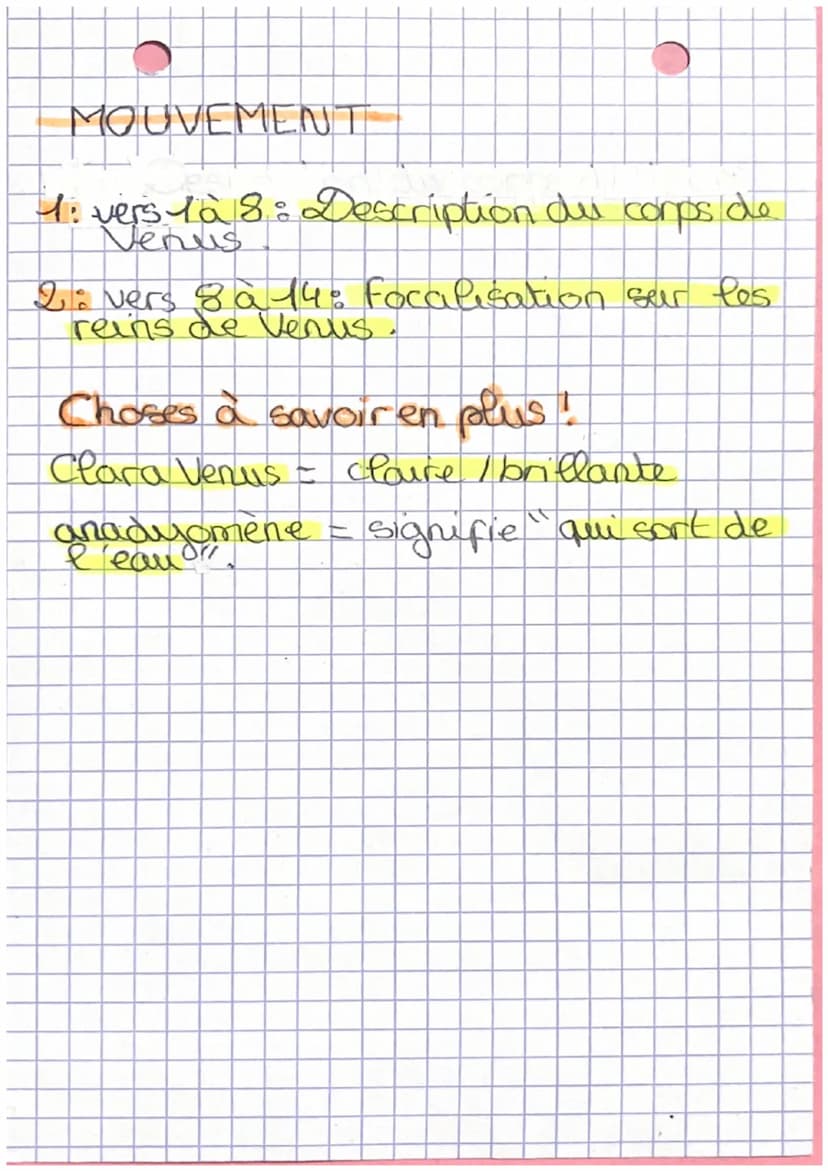 MOUVEMENT
1: vers 1 à 8: Description du corps de
Venus.
2: vers 8 à 14: Focalisation sur les
reins de Venus.
Choses à savoir en plus!
Clara Venus = claire / brillante
anadyomène = signifie "qui sort de
l'eau".